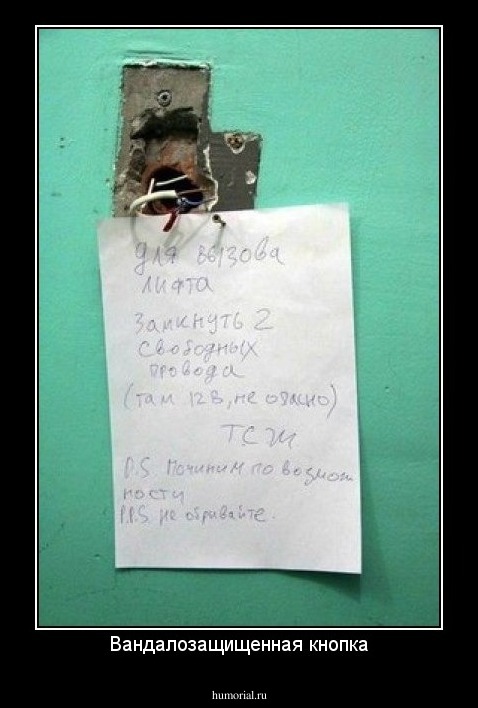 для вызова
лифта
замкнуть 2
свободных
провода
(там 12В, не опасно)
ТСЖ
P.S Починим по возмож
ности
P.P.S. не обривайте.
Вандалозащищенная кнопка
humorial.ru